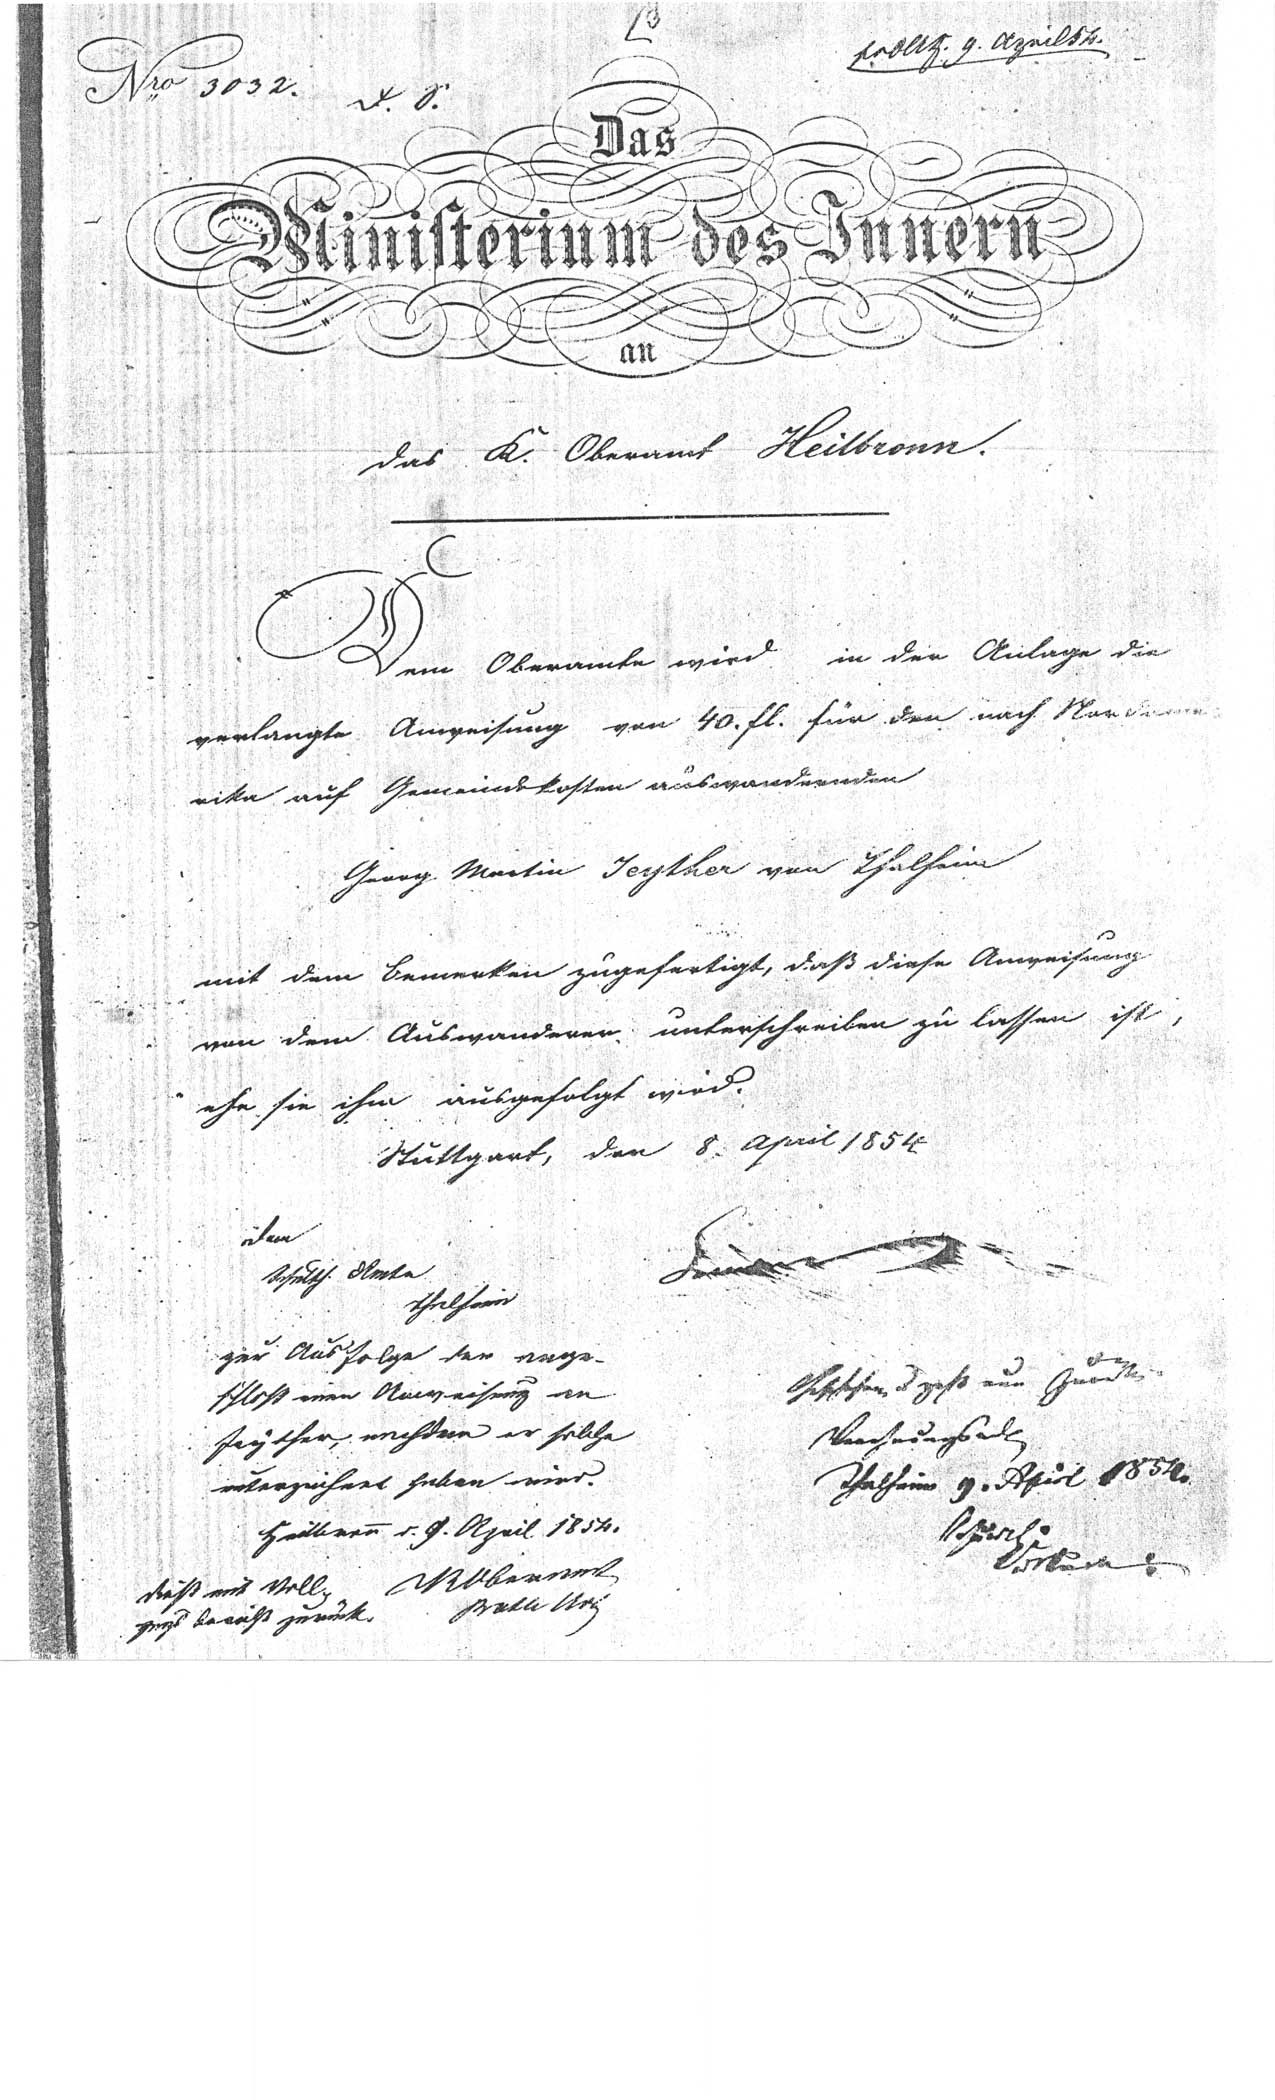 Nro 3032.
9. April 54.
Das
Ministerium des Innern
an
das K. Oberamt Heilbronn.
Dem Oberamte wird in der Anlage die
verlangte Anweisung von 40. fl. für den nach Nordame
rika auf Gemeindekosten auswandernden
Georg Martin Jeyther von Thalheim
mit dem Bemerken zugefertigt, daß diese Anweisung
von dem Auswanderer unterschreiben zu lassen ist,
ehe sie ihm ausgefolgt wird.
Stuttgart, den 8. April 1854
dem
Schulth. Amte
Thalheim
zur Ausfolge der ange-
schlossenen Anweisung an
Jeyther, nachdem er solche
unterzeichnet haben wird.
Heilbronn d. 9. April 1854.
K Oberamt
dieß mit Voll
zugs bericht zurück.
Thalheim 9. April 1854.